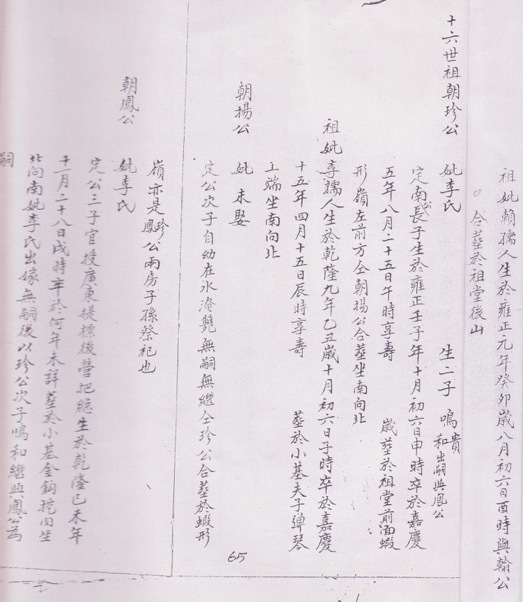 祖妣賴孺人生於雍正元年癸卯歲八月初六日酉時與翰公
合塟於祖堂後山
十六世祖朝珍公 妣李氏 生二子 鳴貴 和出嗣與鳳公
定南公長子生於雍正壬子年十月初六日申時卒於嘉慶
五年八月二十五日午時享壽 歲塟於祖堂前面蝦
形嶺左前方仝朝揚公合塟坐南向北
祖妣李孺人生於乾隆九年乙丑歲十月初六日子時卒於嘉慶
十五年四月十五日辰時享壽 塟於小基夫子彈琴
上端坐南向北
朝揚公 妣未娶
定公次子自幼在水淹斃無嗣無継仝珍公合塟於蝦形
嶺亦是珍鳳公兩房子孫祭祀也
朝鳳公 妣李氏
定公三子官授廣東提標後營把總生於乾隆己未年
十一月二十八日戌時卒於何年未詳塟於小基金鈎挖肉坐
北向南妣李氏出嫁無嗣後以珍公次子鳴和継與鳳公為
嗣
65